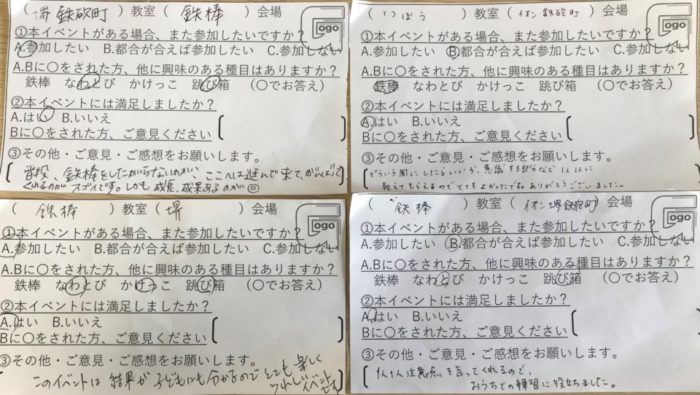 堺 鉄砲町 教室 ( 鉄棒 ) 会場
Logo
①本イベントがある場合、また参加したいですか？
A.参加したい B.都合が合えば参加したい C.参加しない
A.Bに〇をされた方、他に興味のある種目はありますか？
鉄棒 なわとび かけっこ 跳び箱 (〇でお答え)
②本イベントには満足しましたか？
A.はい B.いいえ
Bに〇をされた方、ご意見ください
③その他・ご意見・ご感想をお願いします。
鉄棒をしたがらないのに、ここへは進んで来て、がんばって
くれるのが スゴイです。しかも 成長、成果あるのが◎
( てつぼう ) 教室 ( イオン 鉄砲町 ) 会場
Logo
①本イベントがある場合、また参加したいですか？
A.参加したい B.都合が合えば参加したい C.参加しない
A.Bに〇をされた方、他に興味のある種目はありますか？
鉄棒 なわとび かけっこ 跳び箱 (〇でお答え)
②本イベントには満足しましたか？
A.はい B.いいえ
Bに〇をされた方、ご意見ください
③その他・ご意見・ご感想をお願いします。
どういう風にしたらいいか、意識する部分など 1人1人に
教えてもらえるのでとてもよかったです。ありがとうございました。
( 鉄棒 ) 教室 ( 堺 ) 会場
Logo
①本イベントがある場合、また参加したいですか？
A.参加したい B.都合が合えば参加したい C.参加しない
A.Bに〇をされた方、他に興味のある種目はありますか？
鉄棒 なわとび かけっこ 跳び箱 (〇でお答え)
②本イベントには満足しましたか？
A.はい B.いいえ
Bに〇をされた方、ご意見ください
③その他・ご意見・ご感想をお願いします。
このイベントは 結果が 子どもにも分かるので とても 楽しく
うれしいイベントです
( 鉄棒 ) 教室 ( イオン堺鉄砲町 ) 会場
Logo
①本イベントがある場合、また参加したいですか？
A.参加したい B.都合が合えば参加したい C.参加しない
A.Bに〇をされた方、他に興味のある種目はありますか？
鉄棒 なわとび かけっこ 跳び箱 (〇でお答え)
②本イベントには満足しましたか？
A.はい B.いいえ
Bに〇をされた方、ご意見ください
③その他・ご意見・ご感想をお願いします。
1人1人注意点を言ってくれるので、
おうちでの練習に役立ちました。